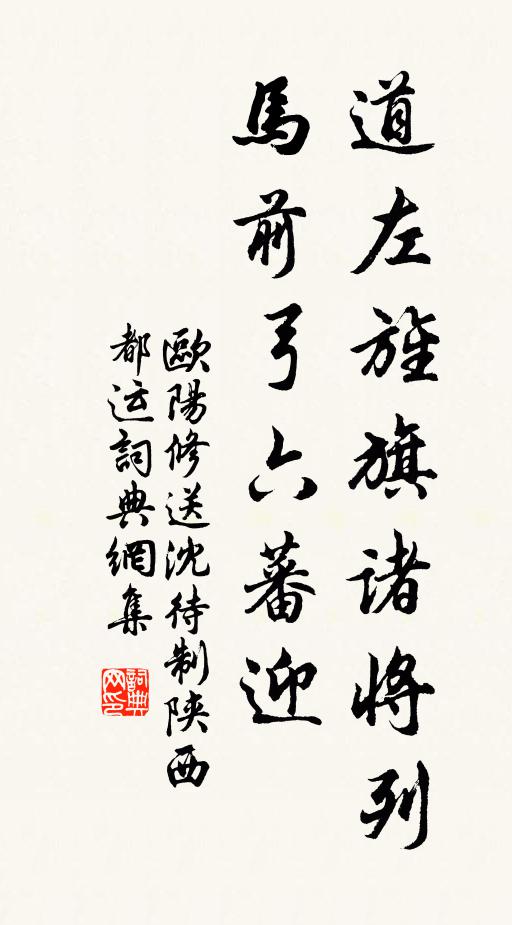 道左旌旗諸將列
馬前弓六蕃迎
歐陽修送沈待制陝西
都运詞典網集
詞典网印